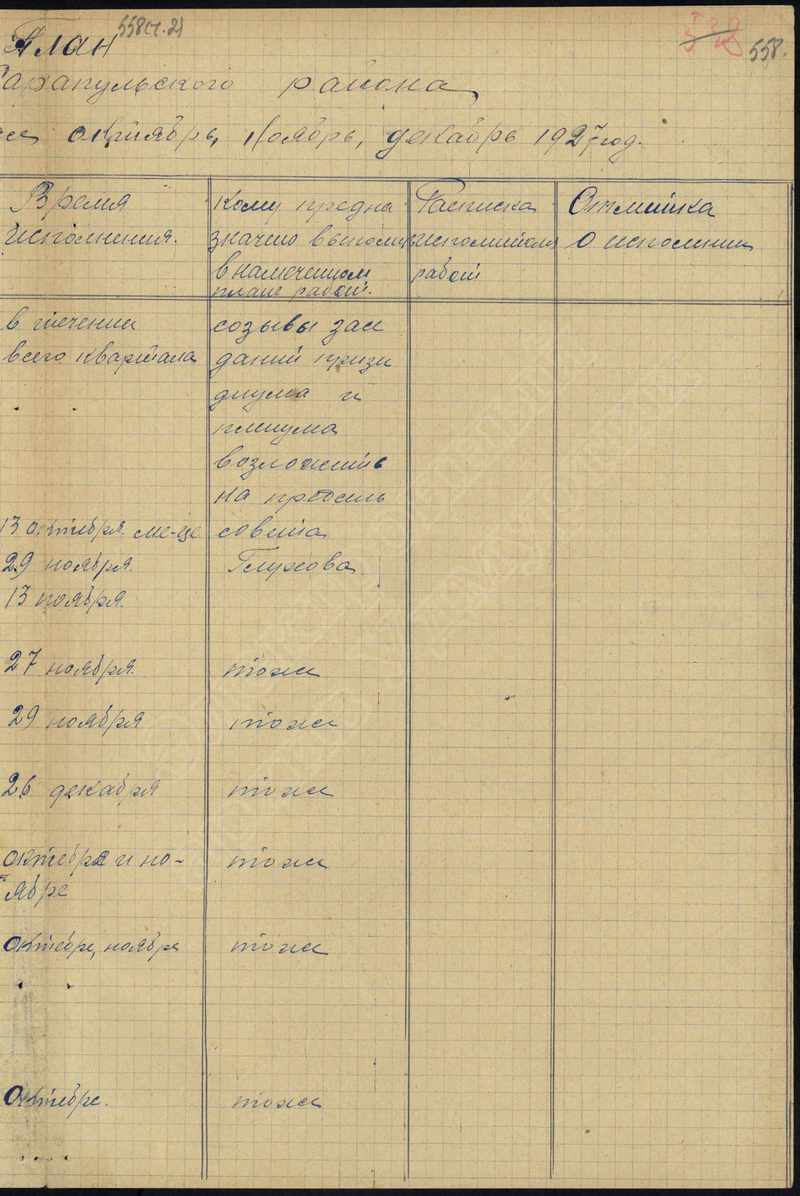 558 ст. 21
558.
План
Сарапульского района
октиябрь, ноябрь, декабрь 1927 год.
Время
исполнения.
Кому предна
значено выполн
в намеченном
плане работ.
Расписка
исполнителя
работ
Отметка
о исполнении
в течении
всего квартала
созывы засе
даний прези
диума и
пленума
возложить
на председ
совета
Глухова
13 октября м-це
29 ноября.
13 ноября.
27 ноября. тоже
29 ноября тоже
26 декабря тоже
октебря и но-
ябре
тоже
октебре, ноября тоже
Октебре. тоже